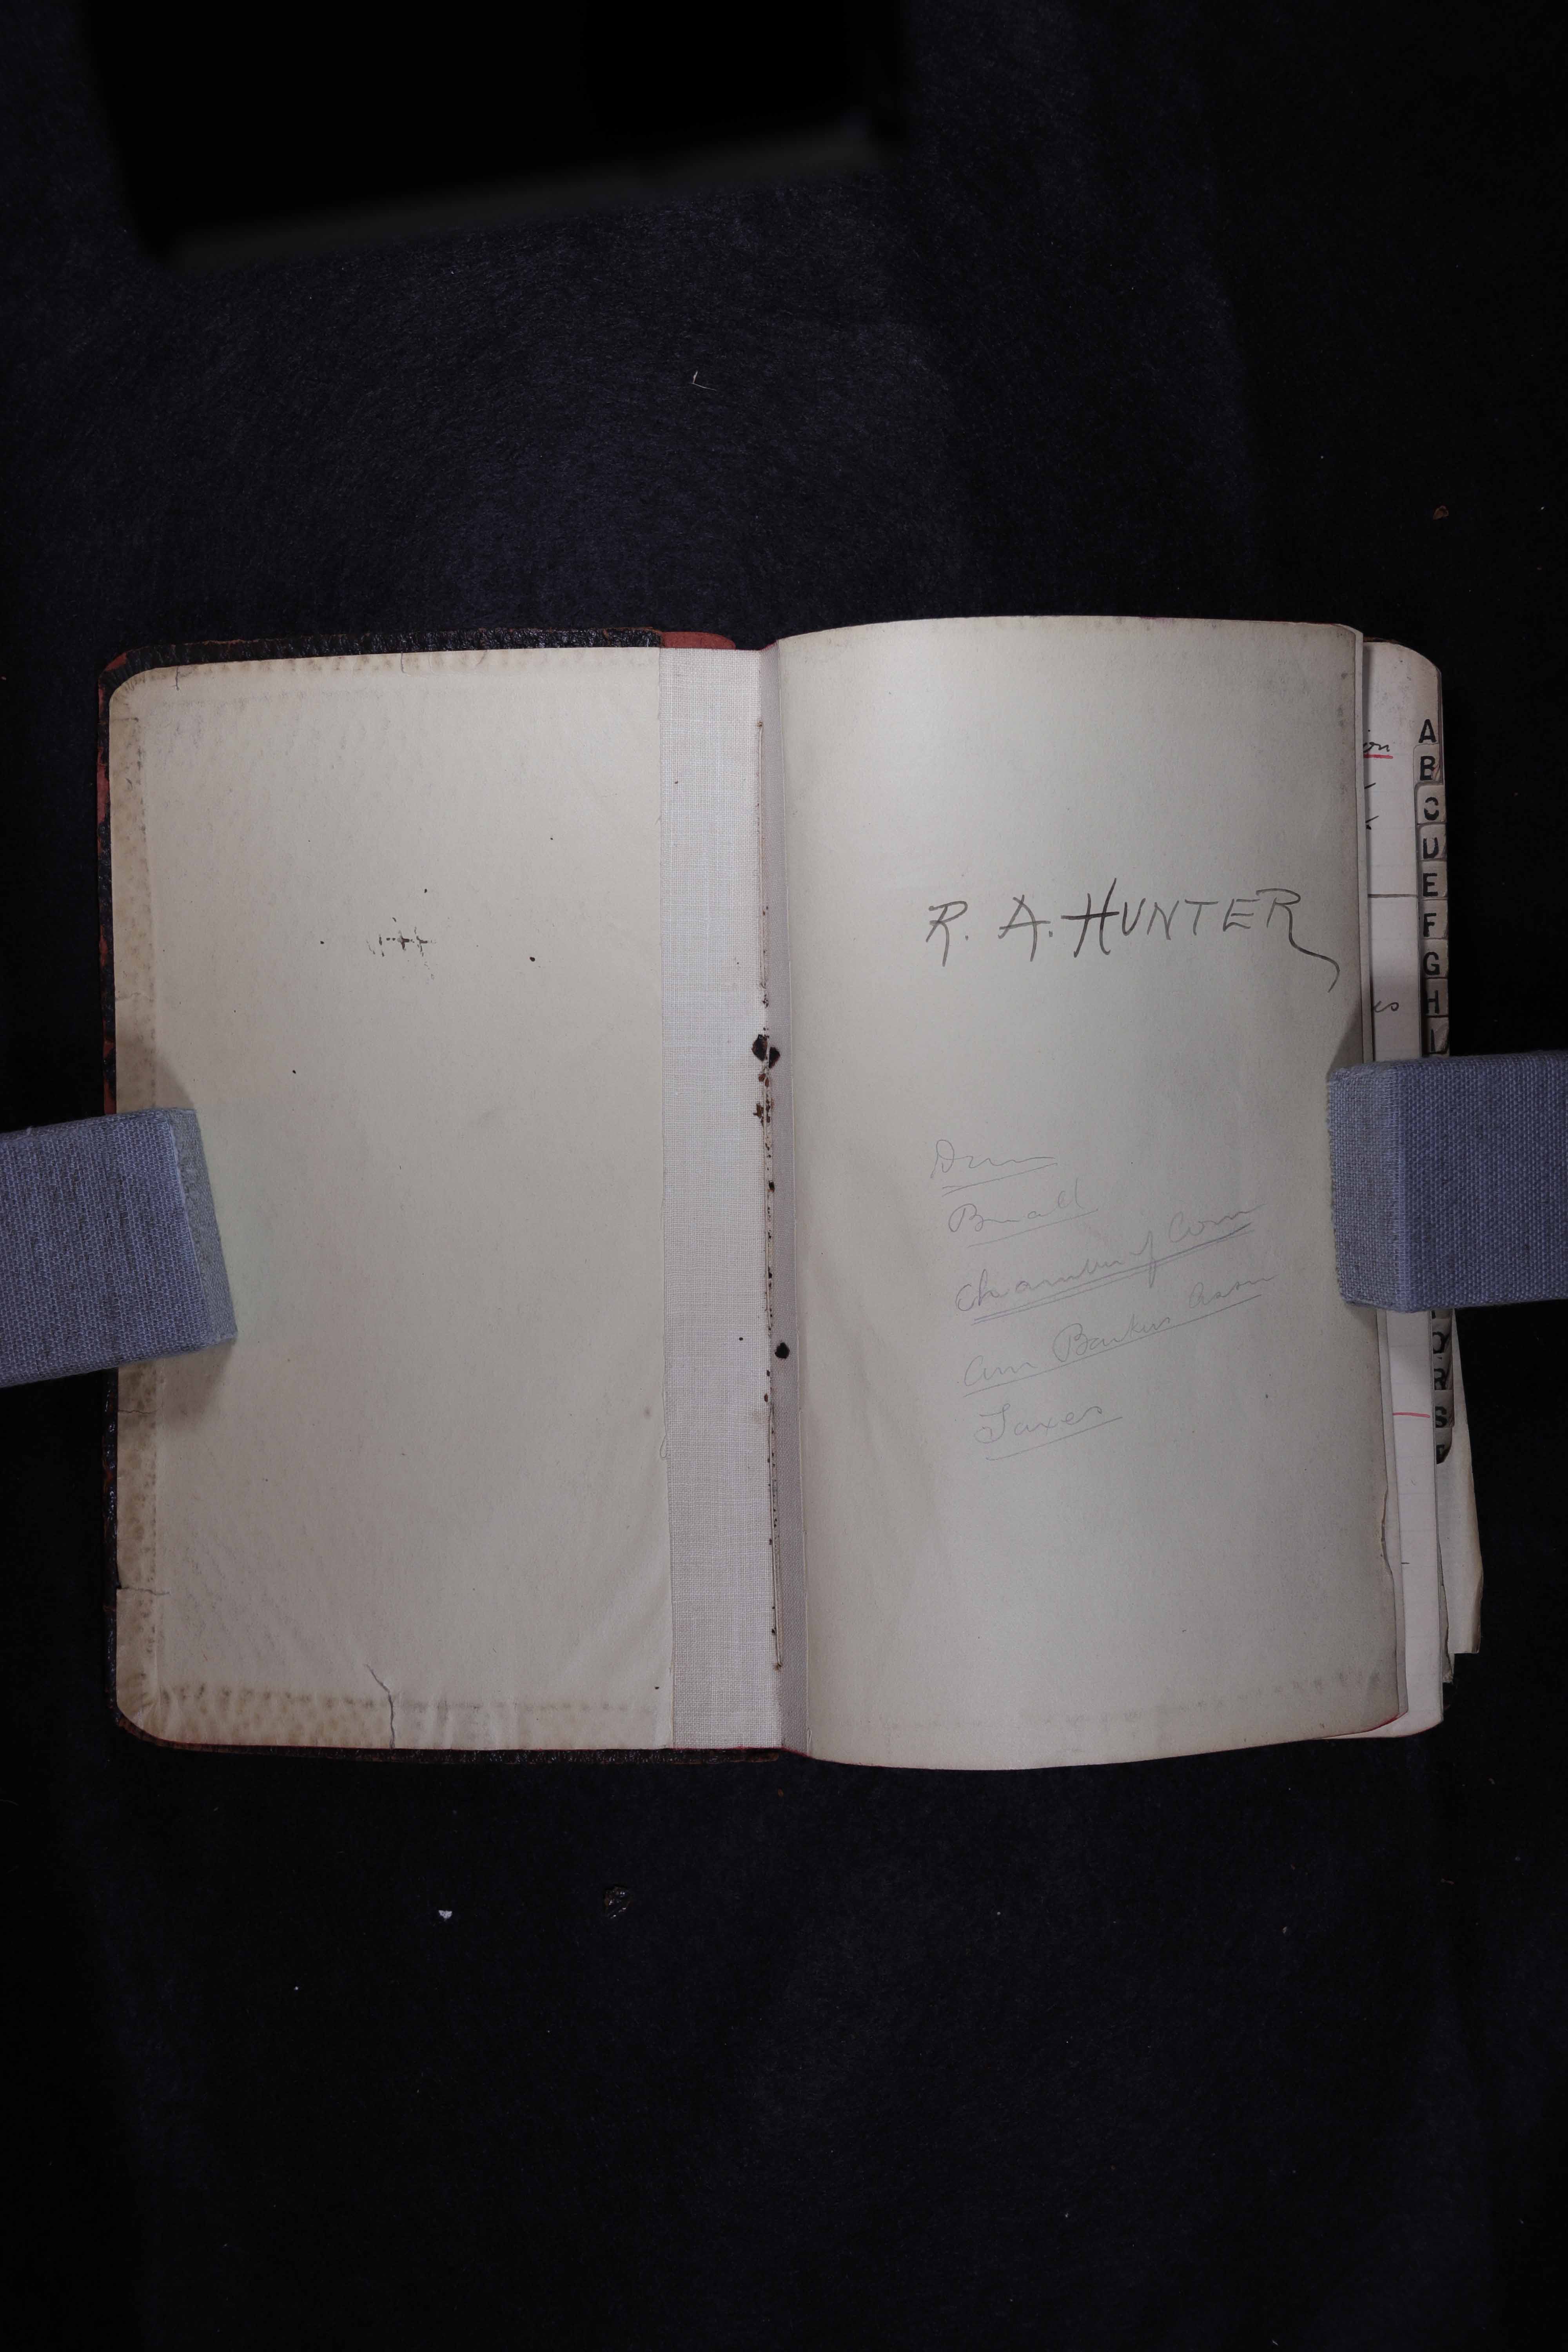 R. A. HUNTER
Chamber of Com
Am Bankers Assn
Taxes
on
A
B
C
D
E
F
G
H
O
R
S